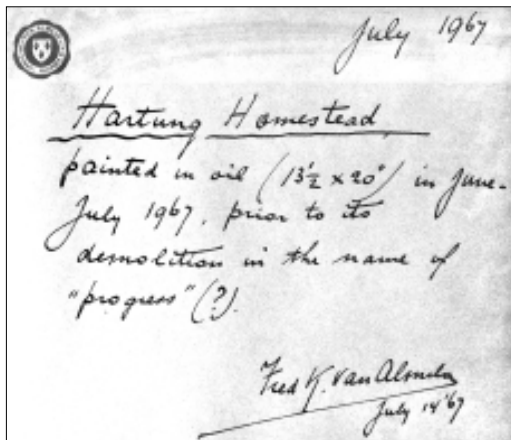 July 1967
Hartung Homestead
painted in oil (13½ x 20") in June-
July 1967, prior to its
demolition in the name of
"progress" (?).
Fred K. van
July 14 '67